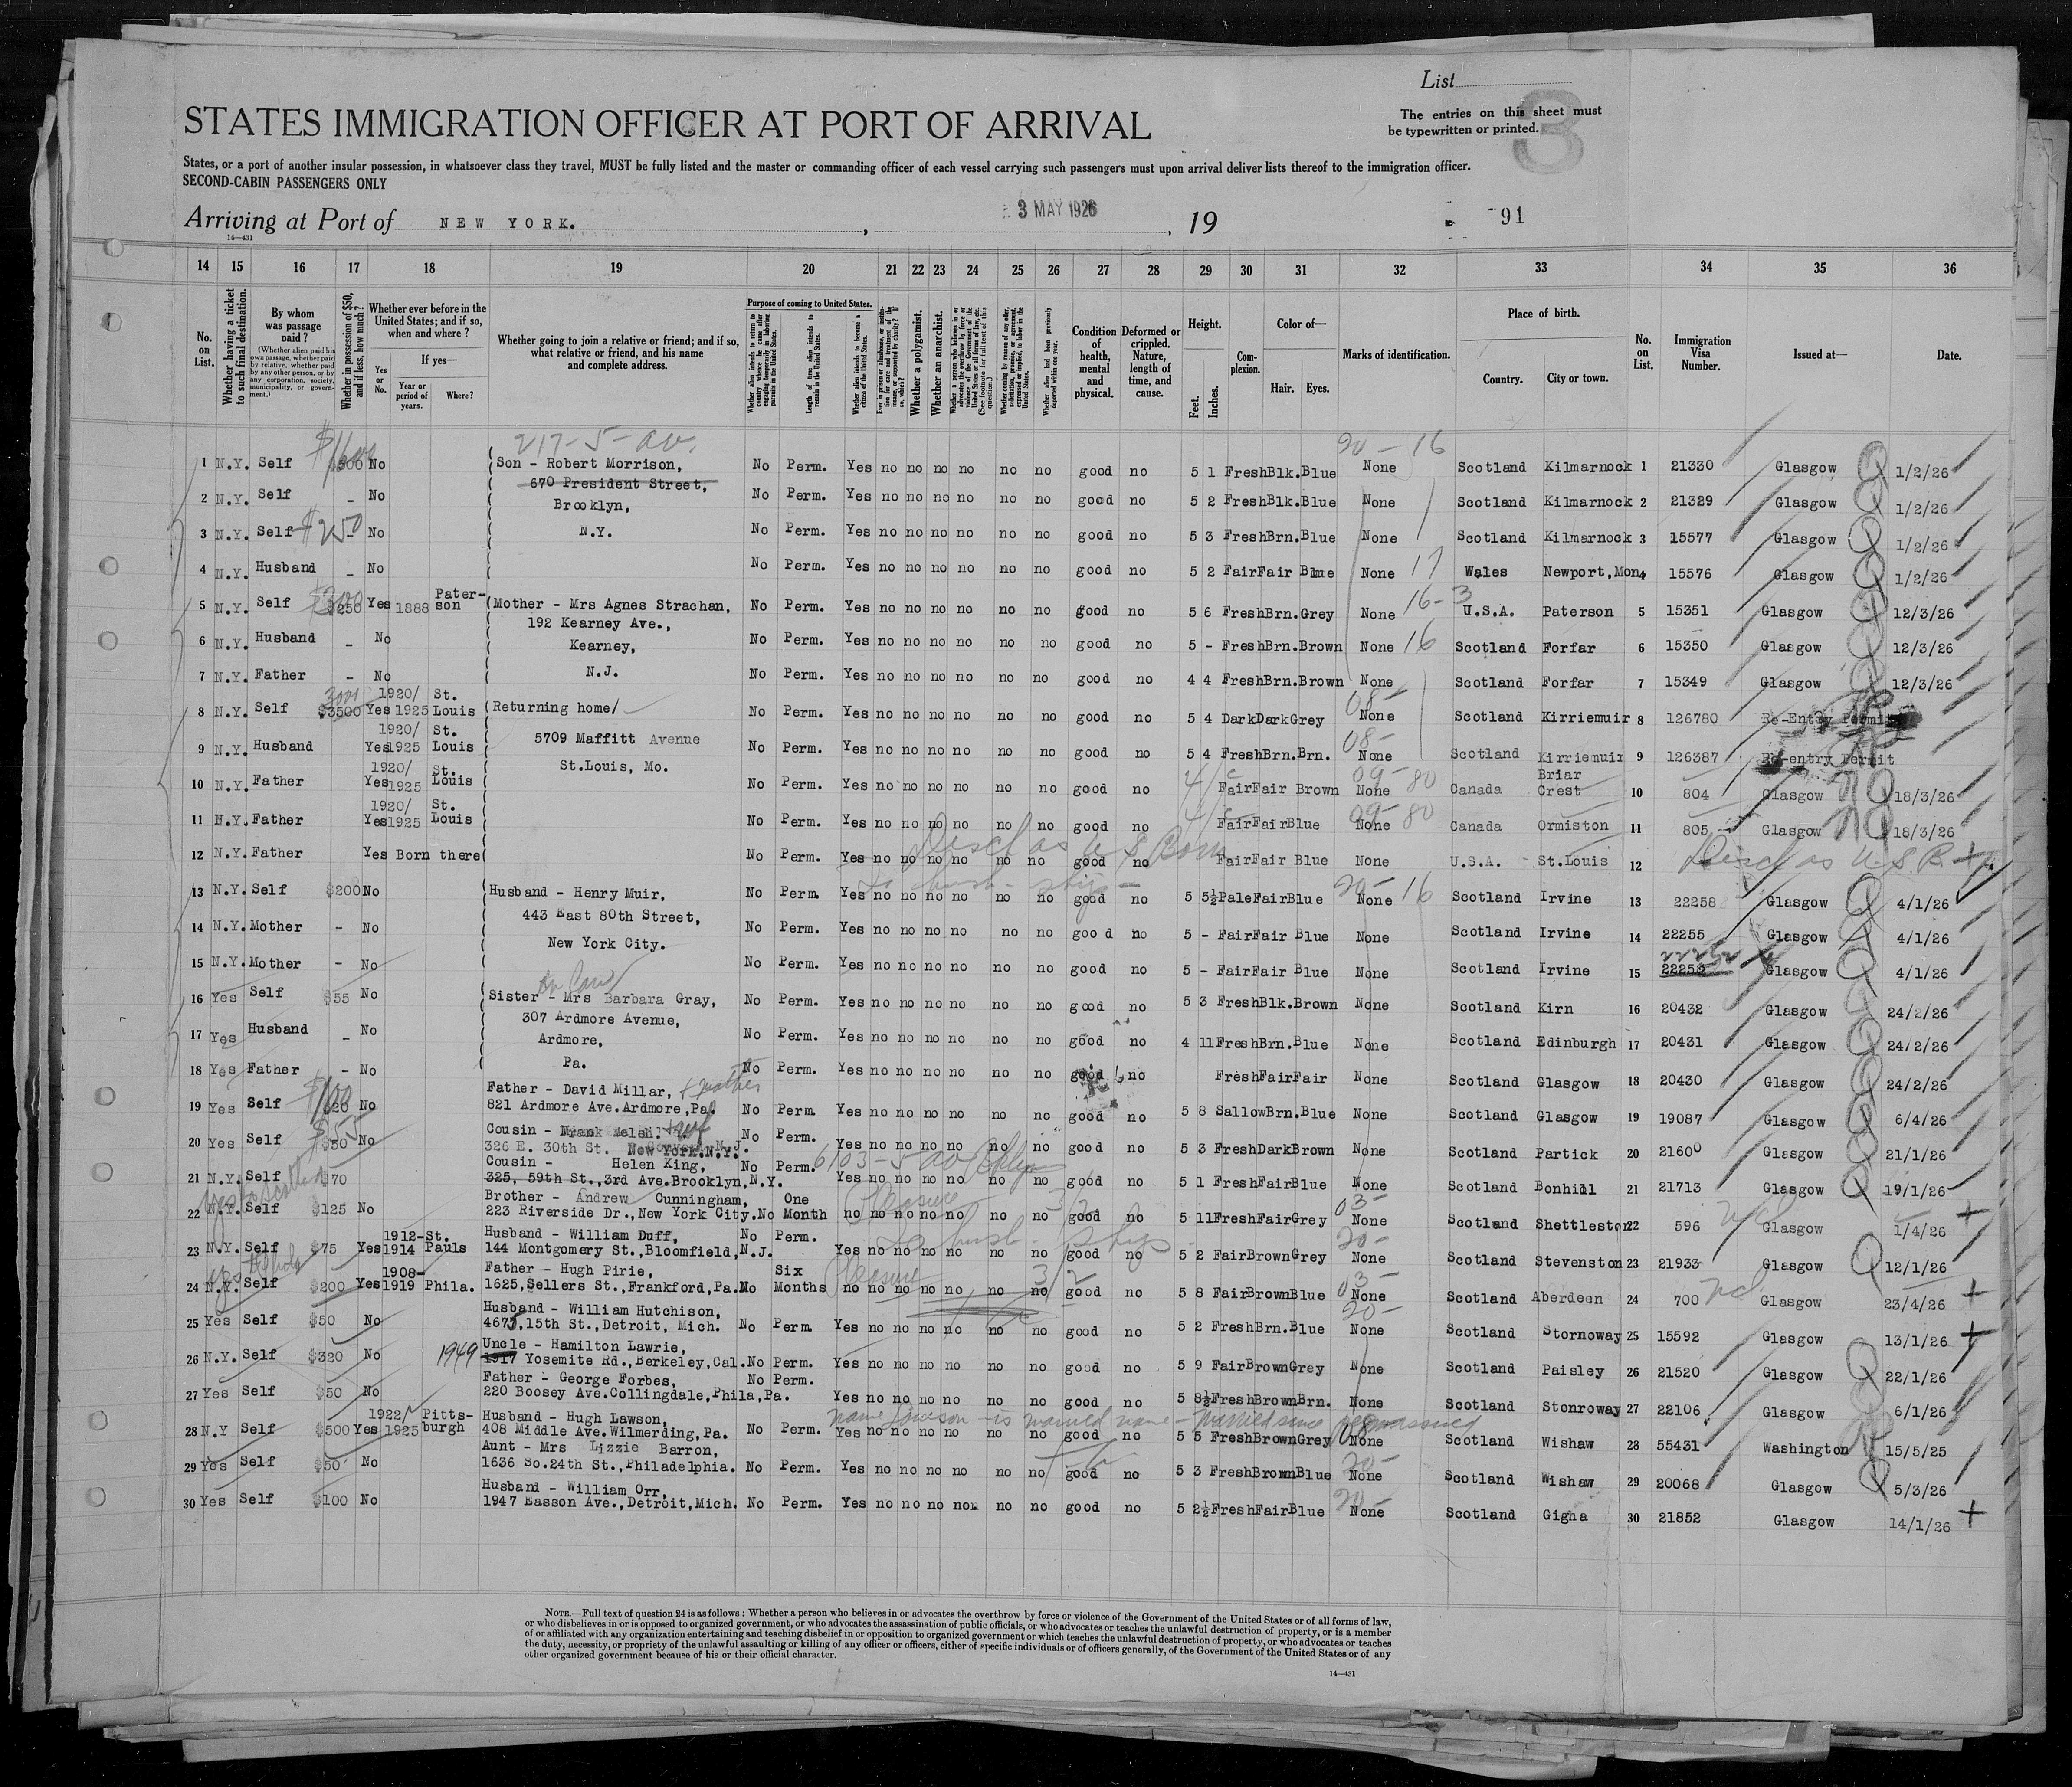 List
3
The entries on this sheet must
be typewritten or printed.
STATES IMMIGRATION OFFICER AT PORT OF ARRIVAL
States, or a port of another insular possession, in whatsoever class they travel, MUST be fully listed and the master or commanding officer of each vessel carrying such passengers must upon arrival deliver lists thereof to the immigration officer.
SECOND-CABIN PASSENGERS ONLY
Arriving at Port of NEW YORK. , 3 MAY 1926 , 19 91
14—431
14 15 16 17 18 19 20 21 22 23 24 25 26 27 28 29 30 31 32 33 34 35 36
No. on List.
Whether having a ticket to such final destination.
By whom was passage paid?
(Whether alien paid his own passage, whether paid by relative, whether paid by any other person, or by any corporation, society, municipality, or government.)
Whether in possession of $50, and if less, how much?
Whether ever before in the United States; and if so, when and where?
Yes or No.
If yes—
Year or period of years.
Where?
Whether going to join a relative or friend; and if so, what relative or friend, and his name and complete address.
Purpose of coming to United States.
Length of time alien intends to remain in the United States.
Whether alien intends to become a citizen of the United States.
Whether a polygamist.
Whether an anarchist.
Condition of health, mental and physical.
Deformed or crippled. Nature, length of time, and cause.
Height.
Feet. Inches.
Complexion.
Color of—
Hair. Eyes.
Marks of identification.
Place of birth.
Country. City or town.
No. on List.
Immigration Visa Number.
Issued at—
Date.
217-5-av. 20-16
1 N.Y. Self No Son - Robert Morrison, No Perm. Yes no no no no no no good no 5 1 Fresh Blk. Blue None Scotland Kilmarnock 1 21330 Glasgow 1/2/26
670 President Street,
2 N.Y. Self - No Brooklyn, No Perm. Yes no no no no no no good no 5 2 Fresh Blk. Blue None Scotland Kilmarnock 2 21329 Glasgow 1/2/26
3 N.Y. Self $250 - No N.Y. No Perm. Yes no no no no no no good no 5 3 Fresh Brn. Blue None Scotland Kilmarnock 3 15577 Glasgow 1/2/26
4 N.Y. Husband - No No Perm. Yes no no no no no no good no 5 2 Fair Fair Blue None 17 Wales Newport, Mon. 4 15576 Glasgow 1/2/26
5 N.Y. Self $250 Yes 1888 Pater-son Mother - Mrs Agnes Strachan, No Perm. Yes no no no no no no good no 5 6 Fresh Brn. Grey None 16-3 U.S.A. Paterson 5 15351 Glasgow 12/3/26
192 Kearney Ave.,
6 N.Y. Husband - No Kearney, No Perm. Yes no no no no no no good no 5 - Fresh Brn. Brown None 16 Scotland Forfar 6 15350 Glasgow 12/3/26
7 N.Y. Father - No N.J. No Perm. Yes no no no no no no good no 4 4 Fresh Brn. Brown None Scotland Forfar 7 15349 Glasgow 12/3/26
8 N.Y. Self $3500 Yes 1920/1925 St. Louis Returning home/ No Perm. Yes no no no no no no good no 5 4 Dark Dark Grey 08- None Scotland Kirriemuir 8 126780 Re-Entry Permit
9 N.Y. Husband Yes 1920/1925 St. Louis 5709 Maffitt Avenue No Perm. Yes no no no no no no good no 5 4 Fresh Brn. Brn. 08- None Scotland Kirriemuir 9 126387 Re-entry Permit
St.Louis, Mo.
10 N.Y. Father Yes 1920/1925 St. Louis No Perm. Yes no no no no no no good no Fair Fair Brown 09-80 None Canada Briar Crest 10 804 Glasgow 18/3/26
11 N.Y. Father Yes 1920/1925 St. Louis No Perm. Yes no no no no no no good no Fair Fair Blue 09-80 None Canada Ormiston 11 805 Glasgow 18/3/26
12 N.Y. Father Yes Born there No Perm. Yes no no no no no no good no Fair Fair Blue None U.S.A. St.Louis 12
Discl as U S Born Discl as U.S.B.
13 N.Y. Self $200 No Husband - Henry Muir, No Perm. Yes no no no no no no good no 5 5½ Pale Fair Blue 20- None 16 Scotland Irvine 13 22258 Glasgow 4/1/26
to husb - ship -
443 East 80th Street,
14 N.Y. Mother - No New York City. No Perm. Yes no no no no no no good no 5 - Fair Fair Blue None Scotland Irvine 14 22255 Glasgow 4/1/26
15 N.Y. Mother - No No Perm. Yes no no no no no no good no 5 - Fair Fair Blue None Scotland Irvine 15 Glasgow 4/1/26
in law
16 Yes Self $55 No Sister - Mrs Barbara Gray, No Perm. Yes no no no no no no good no 5 3 Fresh Blk. Brown None Scotland Kirn 16 20432 Glasgow 24/2/26
307 Ardmore Avenue,
17 Yes Husband - No Ardmore, No Perm. Yes no no no no no no good no 4 11 Fresh Brn. Blue None Scotland Edinburgh 17 20431 Glasgow 24/2/26
18 Yes Father - No Pa. No Perm. Yes no no no no no no good no Fresh Fair Fair None Scotland Glasgow 18 20430 Glasgow 24/2/26
Father - David Millar, + mother
19 Yes Self $100 No 821 Ardmore Ave. Ardmore, Pa. No Perm. Yes no no no no no no good no 5 8 Sallow Brn. Blue None Scotland Glasgow 19 19087 Glasgow 6/4/26
Cousin - Frank
20 Yes Self $50 No 326 E. 30th St. New York.N.Y. No Perm. Yes no no no no no no good no 5 3 Fresh Dark Brown None Scotland Partick 20 21600 Glasgow 21/1/26
Cousin - Helen King, 6103-5 av Bklyn
21 N.Y. Self $70 325, 59th St.,3rd Ave.Brooklyn,N.Y. No Perm. Yes no no no no no no good no 5 1 Fresh Fair Blue None Scotland Bonhill 21 21713 Glasgow 19/1/26
Brother - Andrew Cunningham, Pleasure
22 N.Y. Self $125 No 223 Riverside Dr.,New York City. No One Month no no no no no no no good no 5 11 Fresh Fair Grey 03- None Scotland Shettleston 22 596 Glasgow 1/4/26
Husband - William Duff, to husb - ship
23 N.Y. Self $75 Yes 1912-1914 St. Pauls 144 Montgomery St.,Bloomfield,N.J. No Perm. Yes no no no no no no good no 5 2 Fair Brown Grey 20- None Scotland Stevenston 23 21933 Glasgow 12/1/26
Father - Hugh Pirie, Pleasure
24 N.Y. Self $200 Yes 1908-1919 Phila. 1625,Sellers St.,Frankford,Pa. No Six Months no no no no no no no good no 5 8 Fair Brown Blue 03- None Scotland Aberdeen 24 700 Glasgow 23/4/26
Husband - William Hutchison,
25 Yes Self $50 No 4675,15th St.,Detroit, Mich. No Perm. Yes no no no no no no good no 5 2 Fresh Brn. Blue 20- None Scotland Stornoway 25 15592 Glasgow 13/1/26
Uncle - Hamilton Lawrie,
26 N.Y. Self $320 No 1949 1917 Yosemite Rd.,Berkeley,Cal. No Perm. Yes no no no no no no good no 5 9 Fair Brown Grey None Scotland Paisley 26 21520 Glasgow 22/1/26
Father - George Forbes,
27 Yes Self $50 No 220 Boosey Ave.Collingdale,Phila,Pa. No Perm. Yes no no no no no no good no 5 8½ Fresh Brown Brn. None Scotland Stonroway 27 22106 Glasgow 6/1/26
Husband - Hugh Lawson, name is married name - Married since
28 N.Y Self $500 Yes 1922/1925 Pitts-burgh 408 Middle Ave.Wilmerding,Pa. No Perm. Yes no no no no no no good no 5 5 Fresh Brown Grey 08 None Scotland Wishaw 28 55431 Washington 15/5/25
Aunt - Mrs Lizzie Barron,
29 Yes Self $50 No 1636 So.24th St.,Philadelphia. No Perm. Yes no no no no no no good no 5 3 Fresh Brown Blue 20- None Scotland Wishaw 29 20068 Glasgow 5/3/26
Husband - William Orr,
30 Yes Self $100 No 1947 Easson Ave.,Detroit,Mich. No Perm. Yes no no no no no no good no 5 2½ Fresh Fair Blue 20- None Scotland Gigha 30 21852 Glasgow 14/1/26
NOTE.—Full text of question 24 is as follows: Whether a person who believes in or advocates the overthrow by force or violence of the Government of the United States or of all forms of law,
or who disbelieves in or is opposed to organized government, or who advocates the assassination of public officials, or who advocates or teaches the unlawful destruction of property, or is a member
of or affiliated with any organization entertaining and teaching disbelief in or opposition to organized government or which teaches the unlawful destruction of property, or who advocates or teaches
the duty, necessity, or propriety of the unlawful assaulting or killing of any officer or officers, either of specific individuals or of officers generally, of the Government of the United States or of any
other organized government because of his or their official character.
14—431